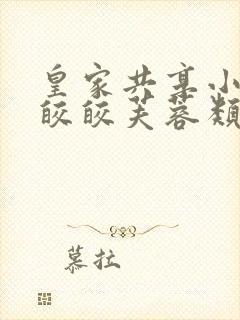 皇家共享小
皎皎芙蓉類
慕拉